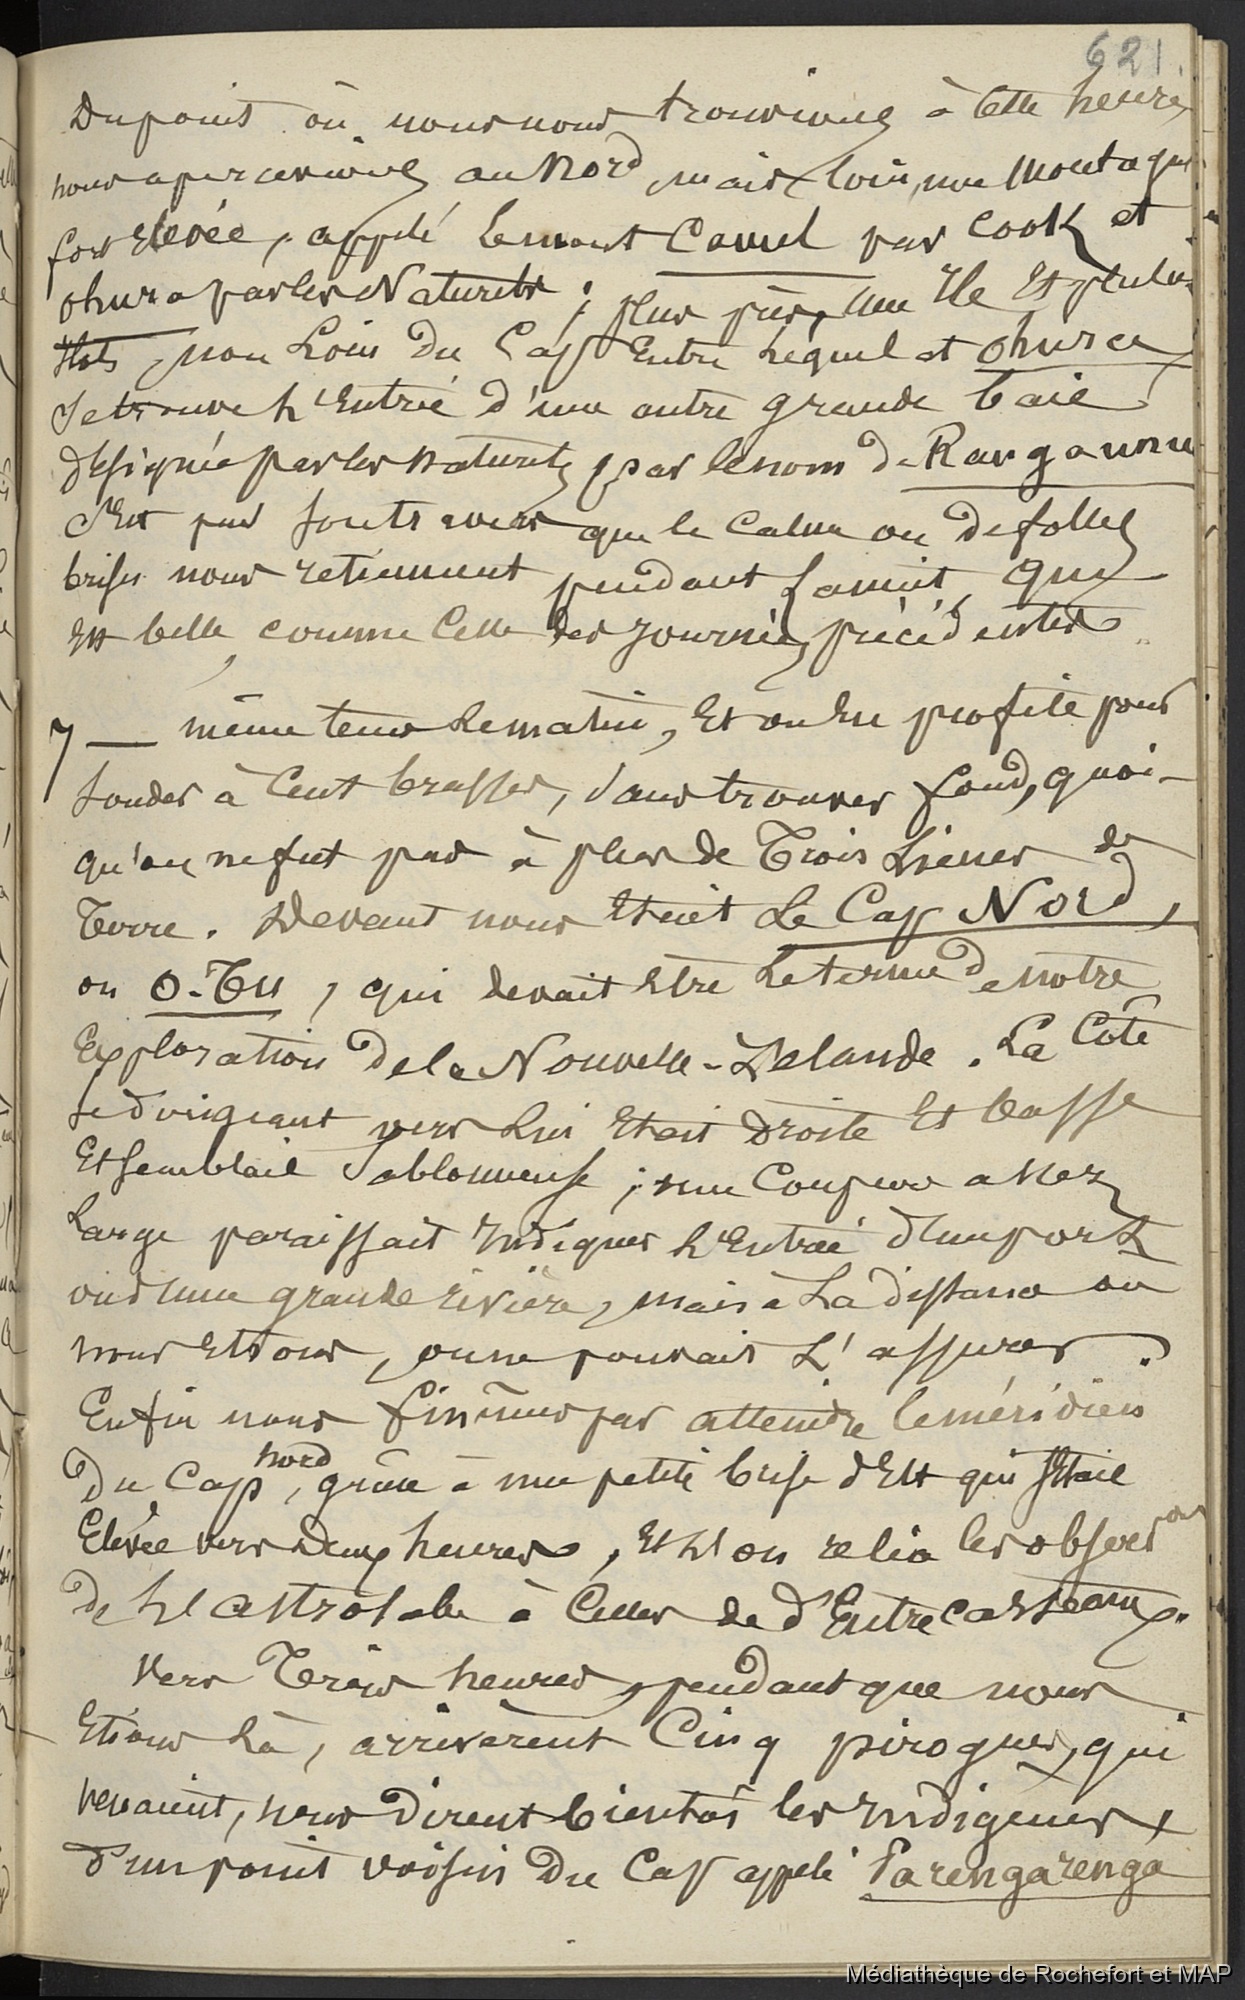 621.
Du point où nous nous trouvions à cette heure,
nous apercevions au Nord, mais loin, une Montagne
fort Elevée, appelé le mont Camel par Cook et
ohura par les Naturels ; plus près, une Ile Et plusrs
Ilots, non Loin du Cap Entre lequel et Ohura
se trouve l'Entrée d'une autre grande baie
désignée par les naturels, par le nom de Rangaunu
C'Est par son travers que le calme ou de folles
brises nous retiennent pendant la nuit, qui
Est belle, comme Celle des journées précédentes
7 — même tems le matin, Et on En profite pour
sonder à Cent brasses, sans trouver fond, quoi-
qu'on ne fut pas à plus de Trois Lieues de
Terre. Devant nous Etait Le Cap Nord,
ou O-Tu, qui devait Etre le terme de notre
Exploration de la Nouvelle-Zelande. La Côte
se dirigeant vers Lui Etait Droite Et basse
Et semblait Sablonneuse ; une Coupure assez
Large paraissait Indiquer l'Entrée d'un port
ou d'une grande rivière, mais à La distance où
nous Etions, on ne pouvait L'assurer.
Enfin nous finîmes par atteindre le méridien
Du Cap nord, grâce à une petite brise d'Est qui s'Etait
Elevée vers Deux heures, Et l'on relia les observons
de l'astrolabe à Celles de d'Entrecasteaux.
Vers Trois heures, pendant que nous
Etions Là, arrivèrent Cinq pirogues, qui
venaient, nous dirent bientôt les Indigènes
d'un point voisin Du Cap appelé Parengarenga
Médiathèque de Rochefort et MAP